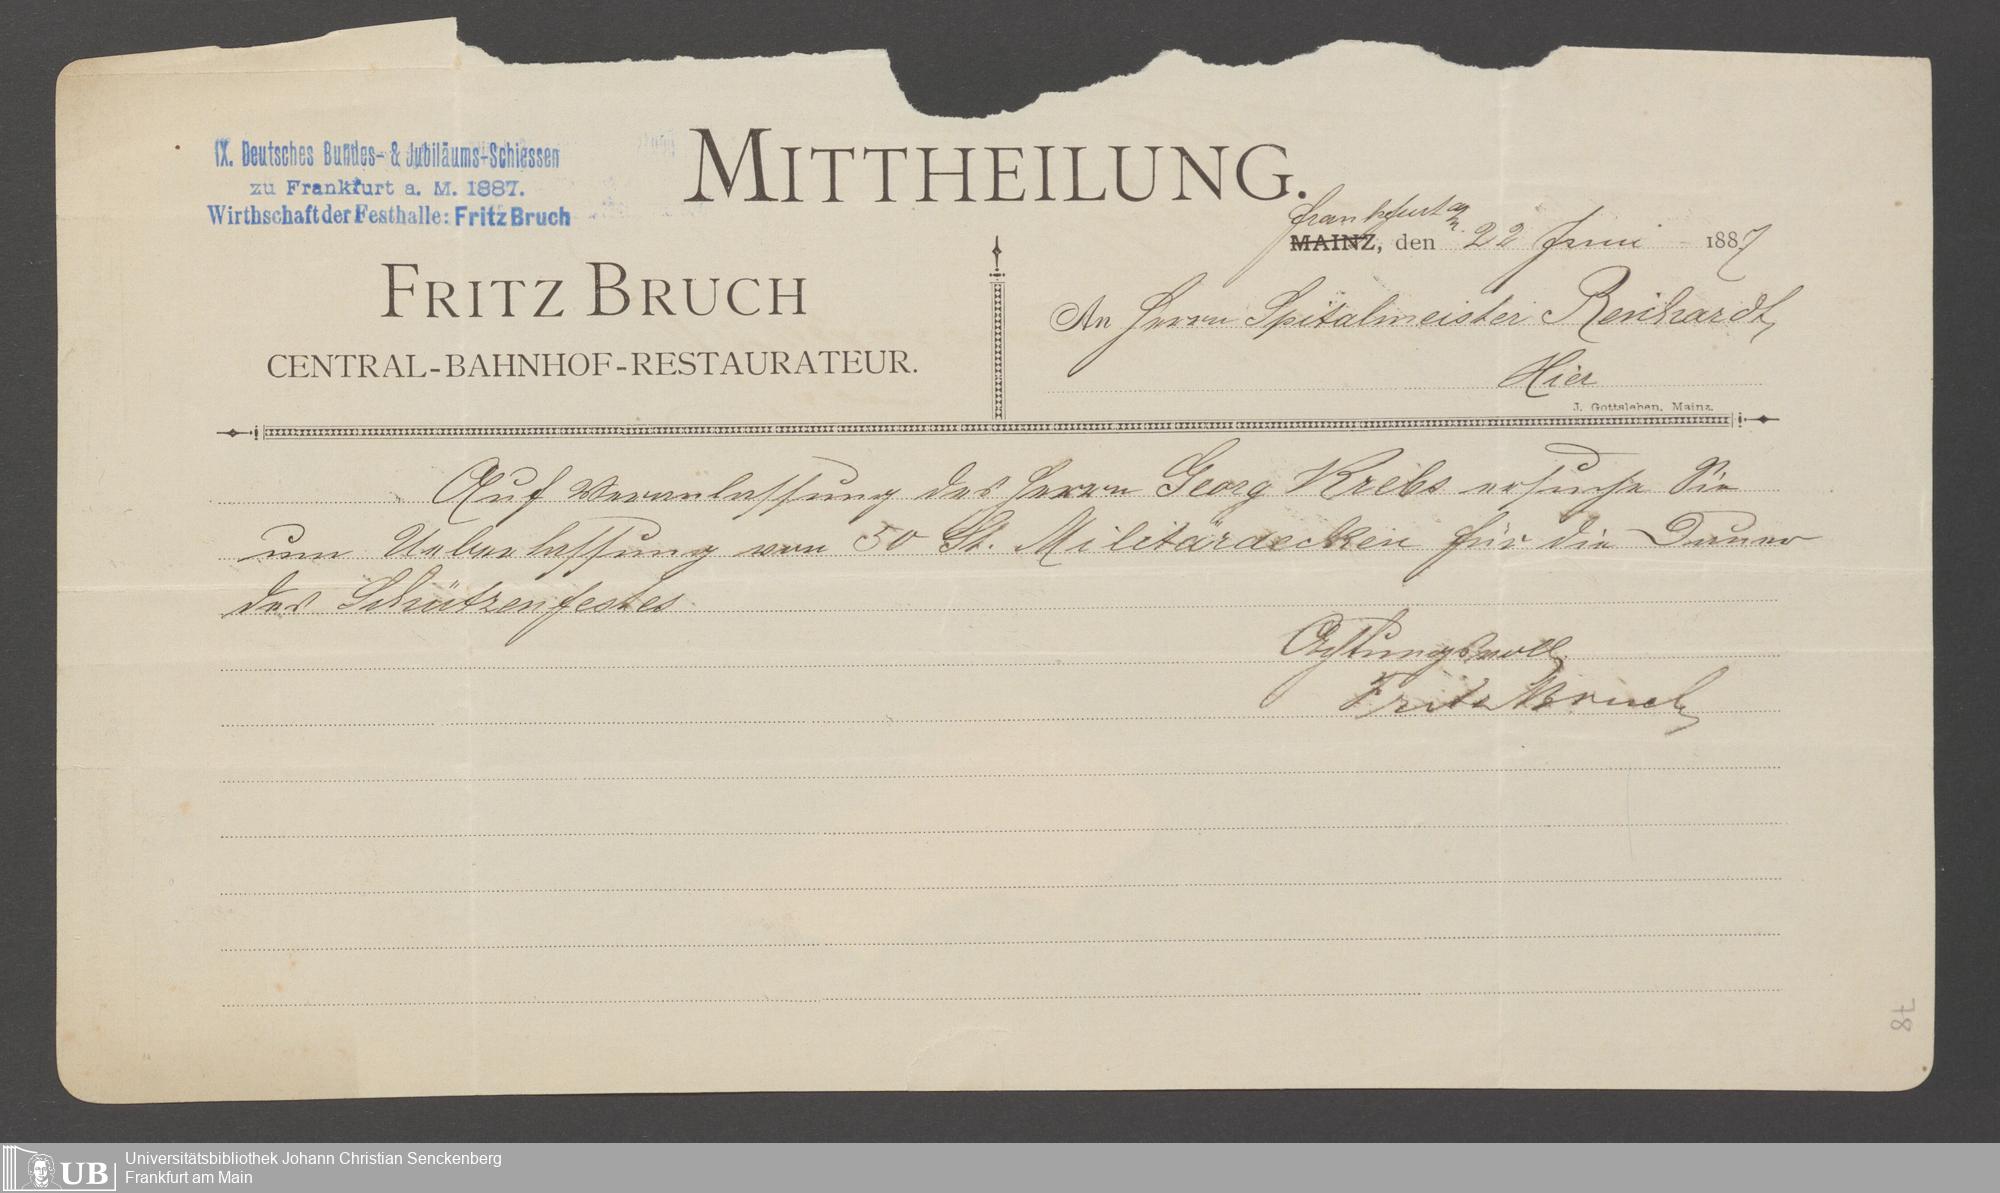 IX. Deutsches Bundes- & Jubiläums-Schiessen
zu Frankfurt a. M. 1887.
Wirthschaft der Festhalle: Fritz Bruch
MITTHEILUNG.
Frankfurt a/M.
MAINZ, den 22 Juni 1887
FRITZ BRUCH
CENTRAL-BAHNHOF-RESTAURATEUR.
An Herrn Spitalmeister Reinhardt,
Hier
J. Gottsleben, Mainz.
Auf Veranlassung des Herrn Georg Krebs ersuche Sie
um Ueberlassung von 50 St. Militärdecken für die Dauer
des Schützenfestes
Achtungsvoll
Fritz Bruch
78
UB
Universitätsbibliothek Johann Christian Senckenberg
Frankfurt am Main